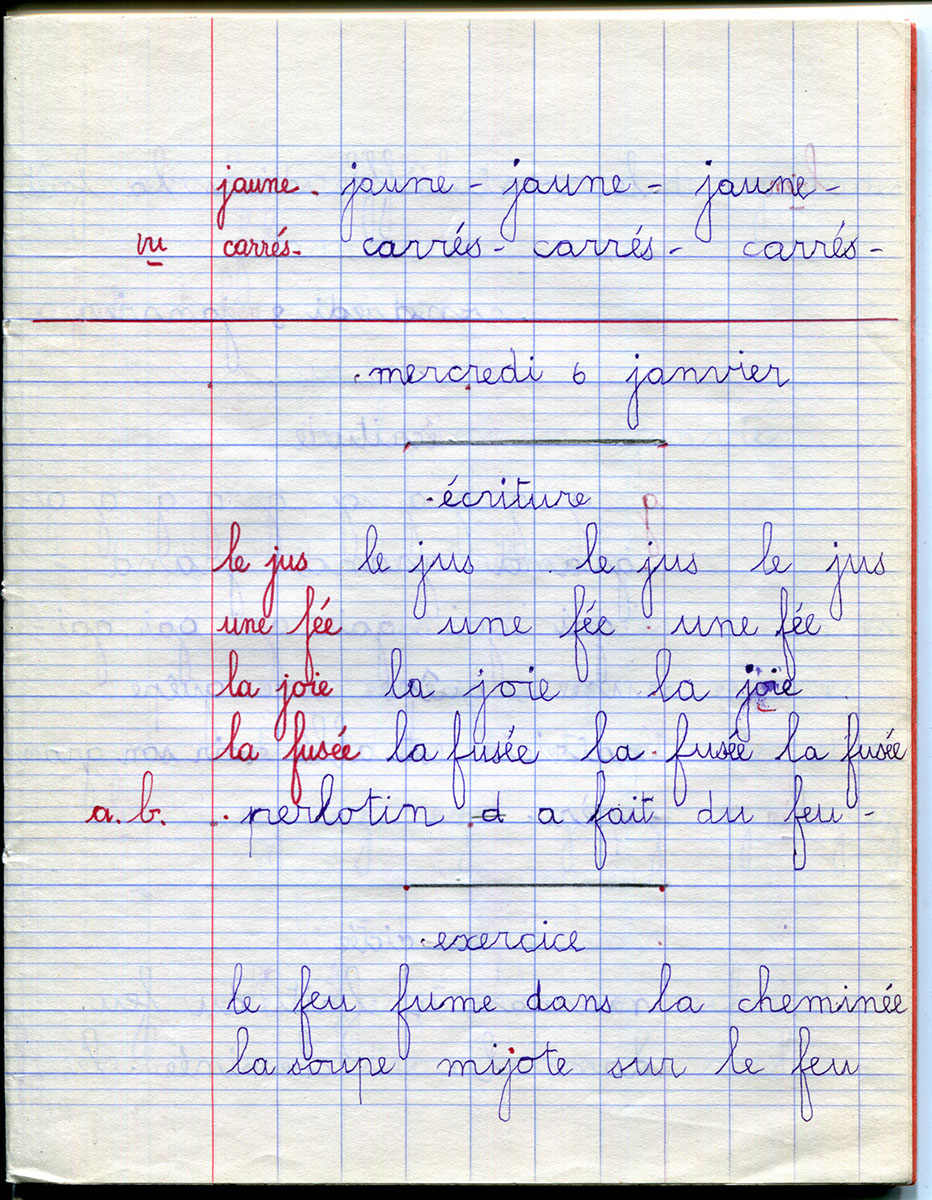 jaune. jaune - jaune - jaune -
vu carrés - carrés - carrés - carrés -
mercredi 6 janvier
écriture
le jus le jus le jus le jus
une fée une fée une fée
la joie la joie la joie
la fusée la fusée la fusée la fusée
a.b. perlotin d a fait du feu -
exercice
le feu fume dans la cheminée
la soupe mijote sur le feu